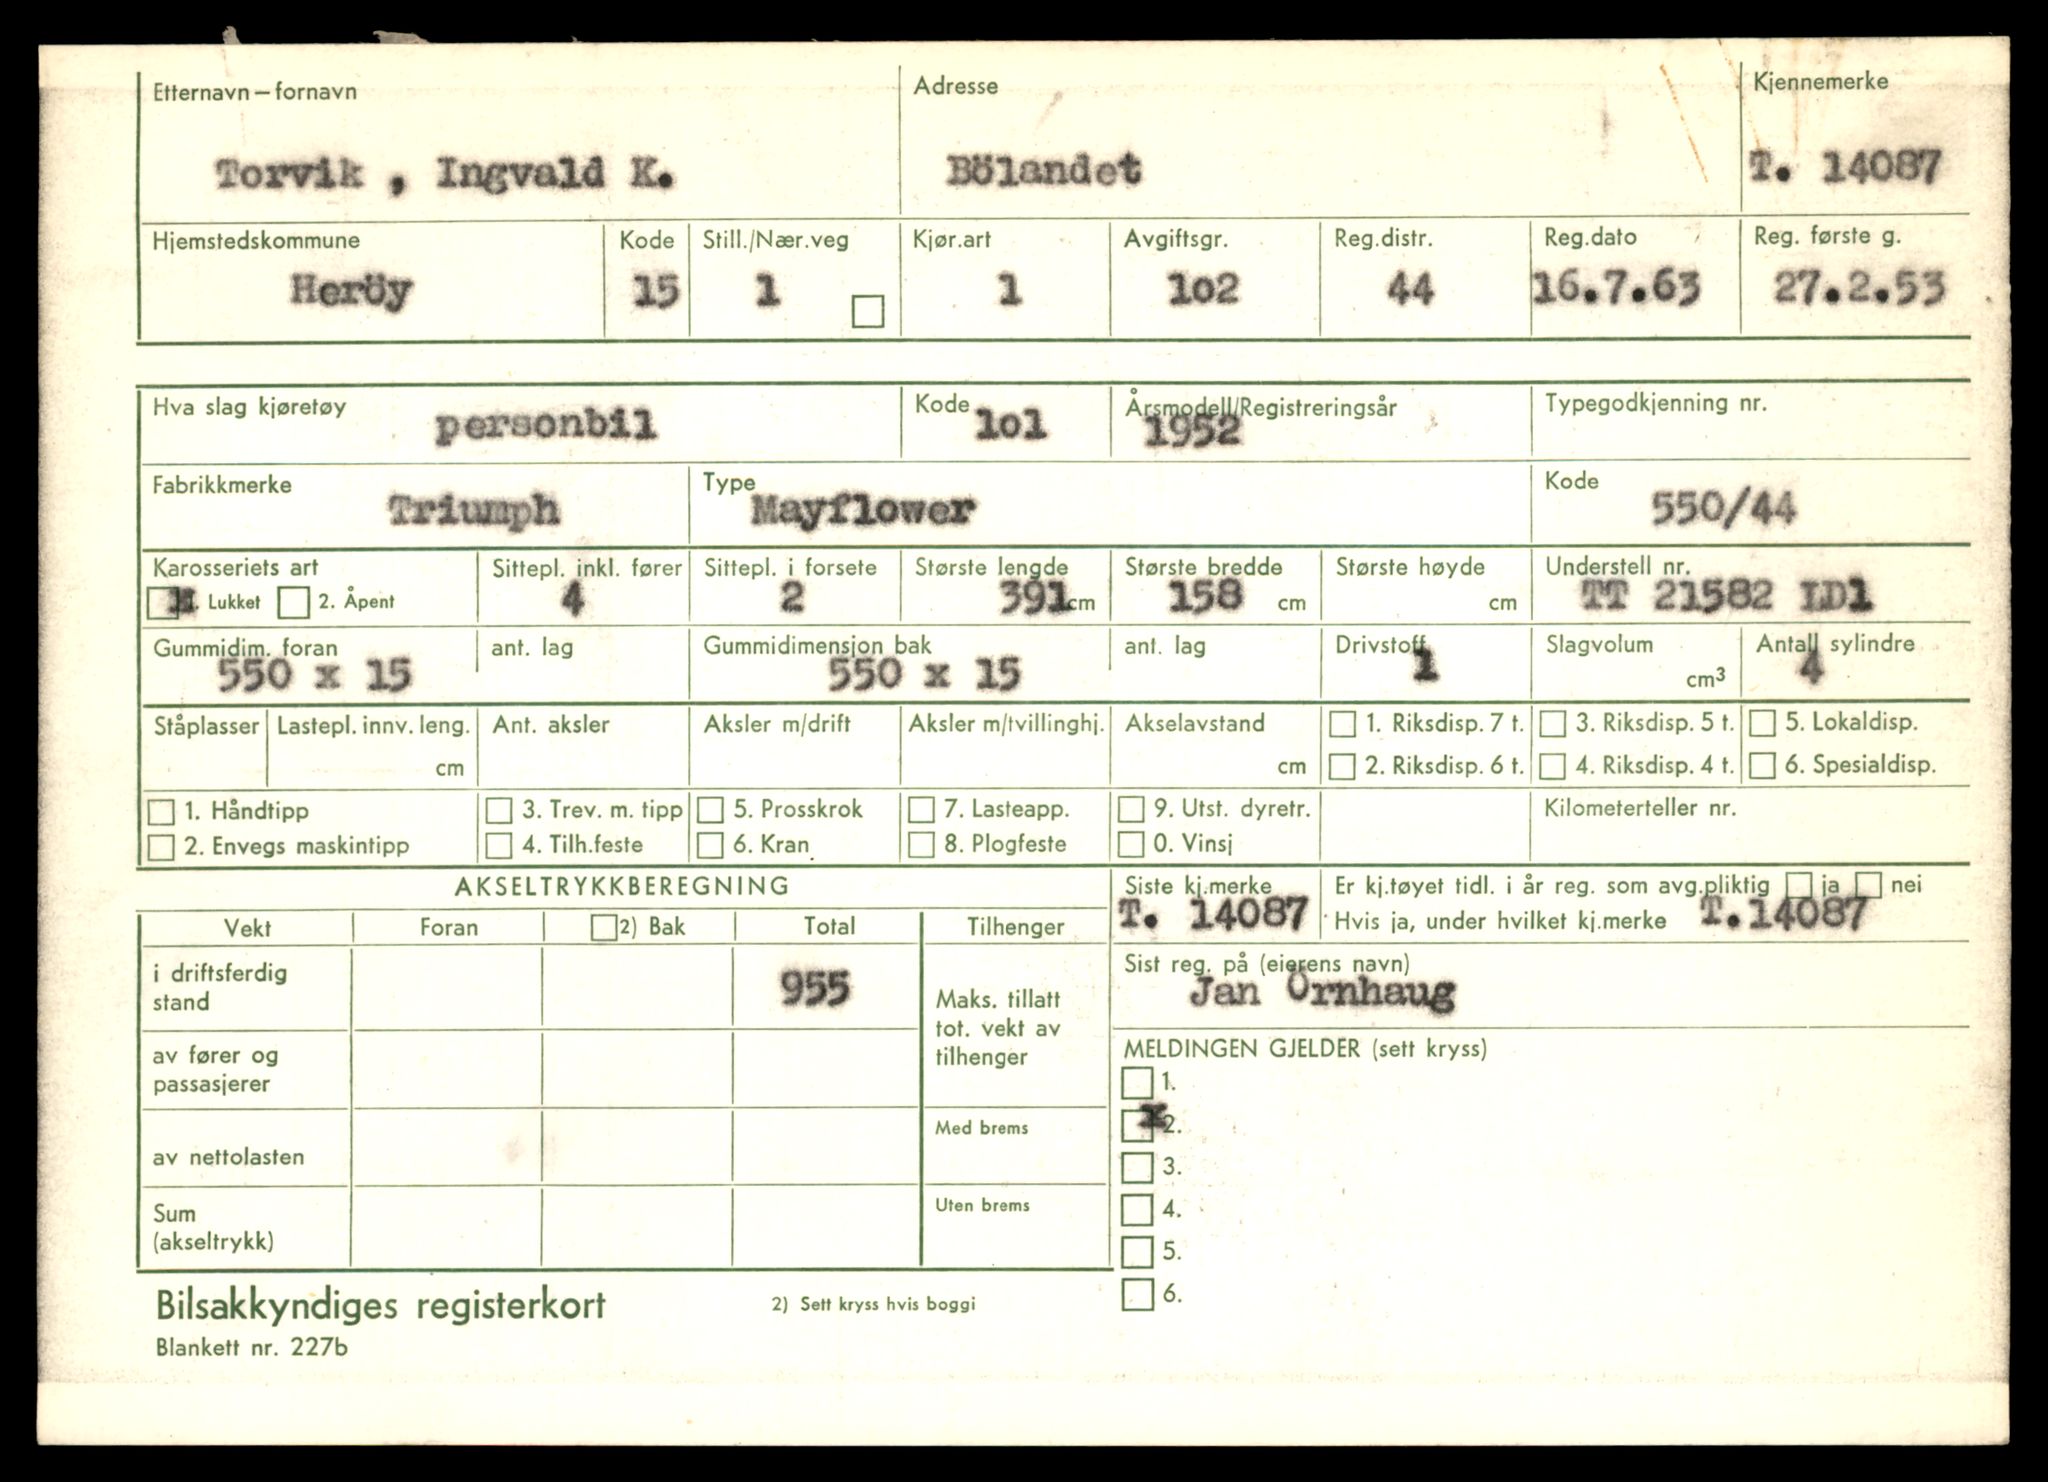 Etternavn – fornavn Adresse Kjennemerke
Torvik , Ingvald K. Bölandet T. 14087
Hjemstedskommune Kode Still./Nær.veg Kjør.art Avgiftsgr. Reg.distr. Reg.dato Reg. første g.
Heröy 15 1 1 1o2 44 16.7.63 27.2.53
Hva slag kjøretøy Kode Årsmodell/Registreringsår Typegodkjenning nr.
personbil 1o1 1952
Fabrikkmerke Type Kode
Triumph Mayflower 550/44
Karosseriets art Sittepl. inkl. fører Sittepl. i forsete Største lengde Største bredde Største høyde Understell nr.
x 1. Lukket 2. Åpent 4 2 391 cm 158 cm cm TT 21582 LD1
Gummidim. foran ant. lag Gummidimensjon bak ant. lag Drivstoff Slagvolum Antall sylindre
550 x 15 550 x 15 1 cm³ 4
Ståplasser Lastepl. innv. leng. Ant. aksler Aksler m/drift Aksler m/tvillinghj. Akselavstand 1. Riksdisp. 7 t. 3. Riksdisp. 5 t. 5. Lokaldisp.
cm cm 2. Riksdisp. 6 t. 4. Riksdisp. 4 t. 6. Spesialdisp.
1. Håndtipp 3. Trev. m. tipp 5. Prosskrok 7. Lasteapp. 9. Utst. dyretr. Kilometerteller nr.
2. Envegs maskintipp 4. Tilh.feste 6. Kran 8. Plogfeste 0. Vinsj
AKSELTRYKKBEREGNING Siste kj.merke Er kj.tøyet tidl. i år reg. som avg.pliktig ja nei
T. 14087 Hvis ja, under hvilket kj.merke T.14087
Vekt Foran 2) Bak Total Tilhenger
Sist reg. på (eierens navn)
i driftsferdig
stand 955 Jan Örnhaug
Maks. tillatt
tot. vekt av
tilhenger
av fører og
passasjerer
MELDINGEN GJELDER (sett kryss)
1.
x 2.
Med brems
av nettolasten 3.
Uten brems
4.
Sum
(akseltrykk)
5.
6.
Bilsakkyndiges registerkort 2) Sett kryss hvis boggi
Blankett nr. 227b